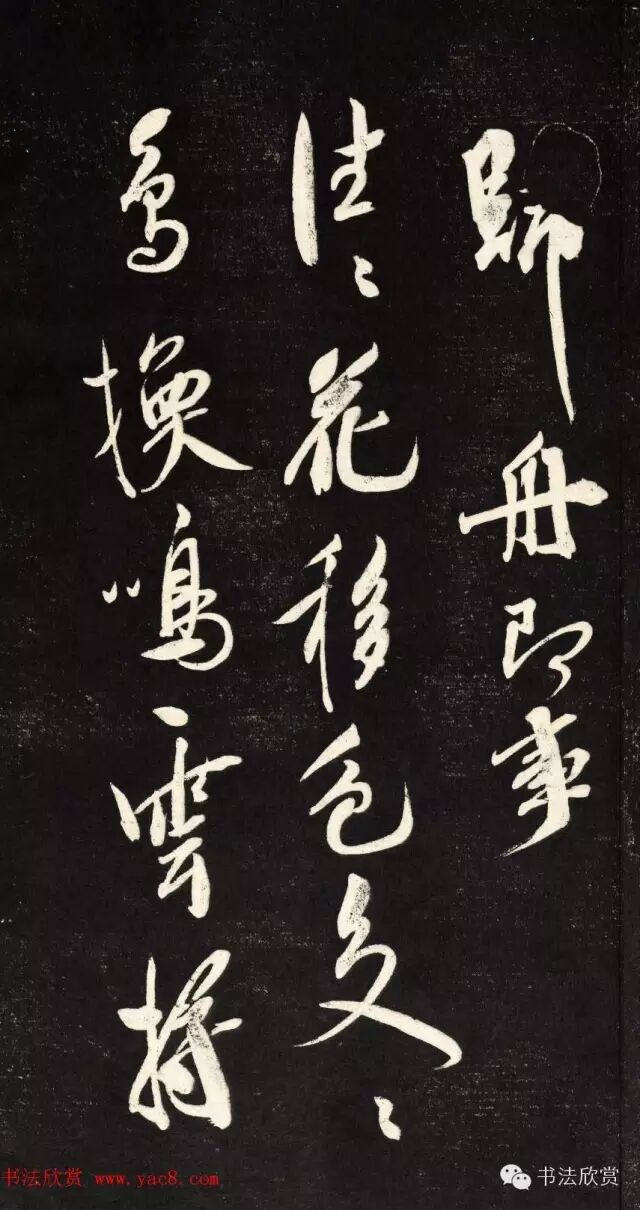 歸舟即事
往〻花移色处〻
鳥換鳴雲將
书法欣赏 www.yac8.com
书法欣赏